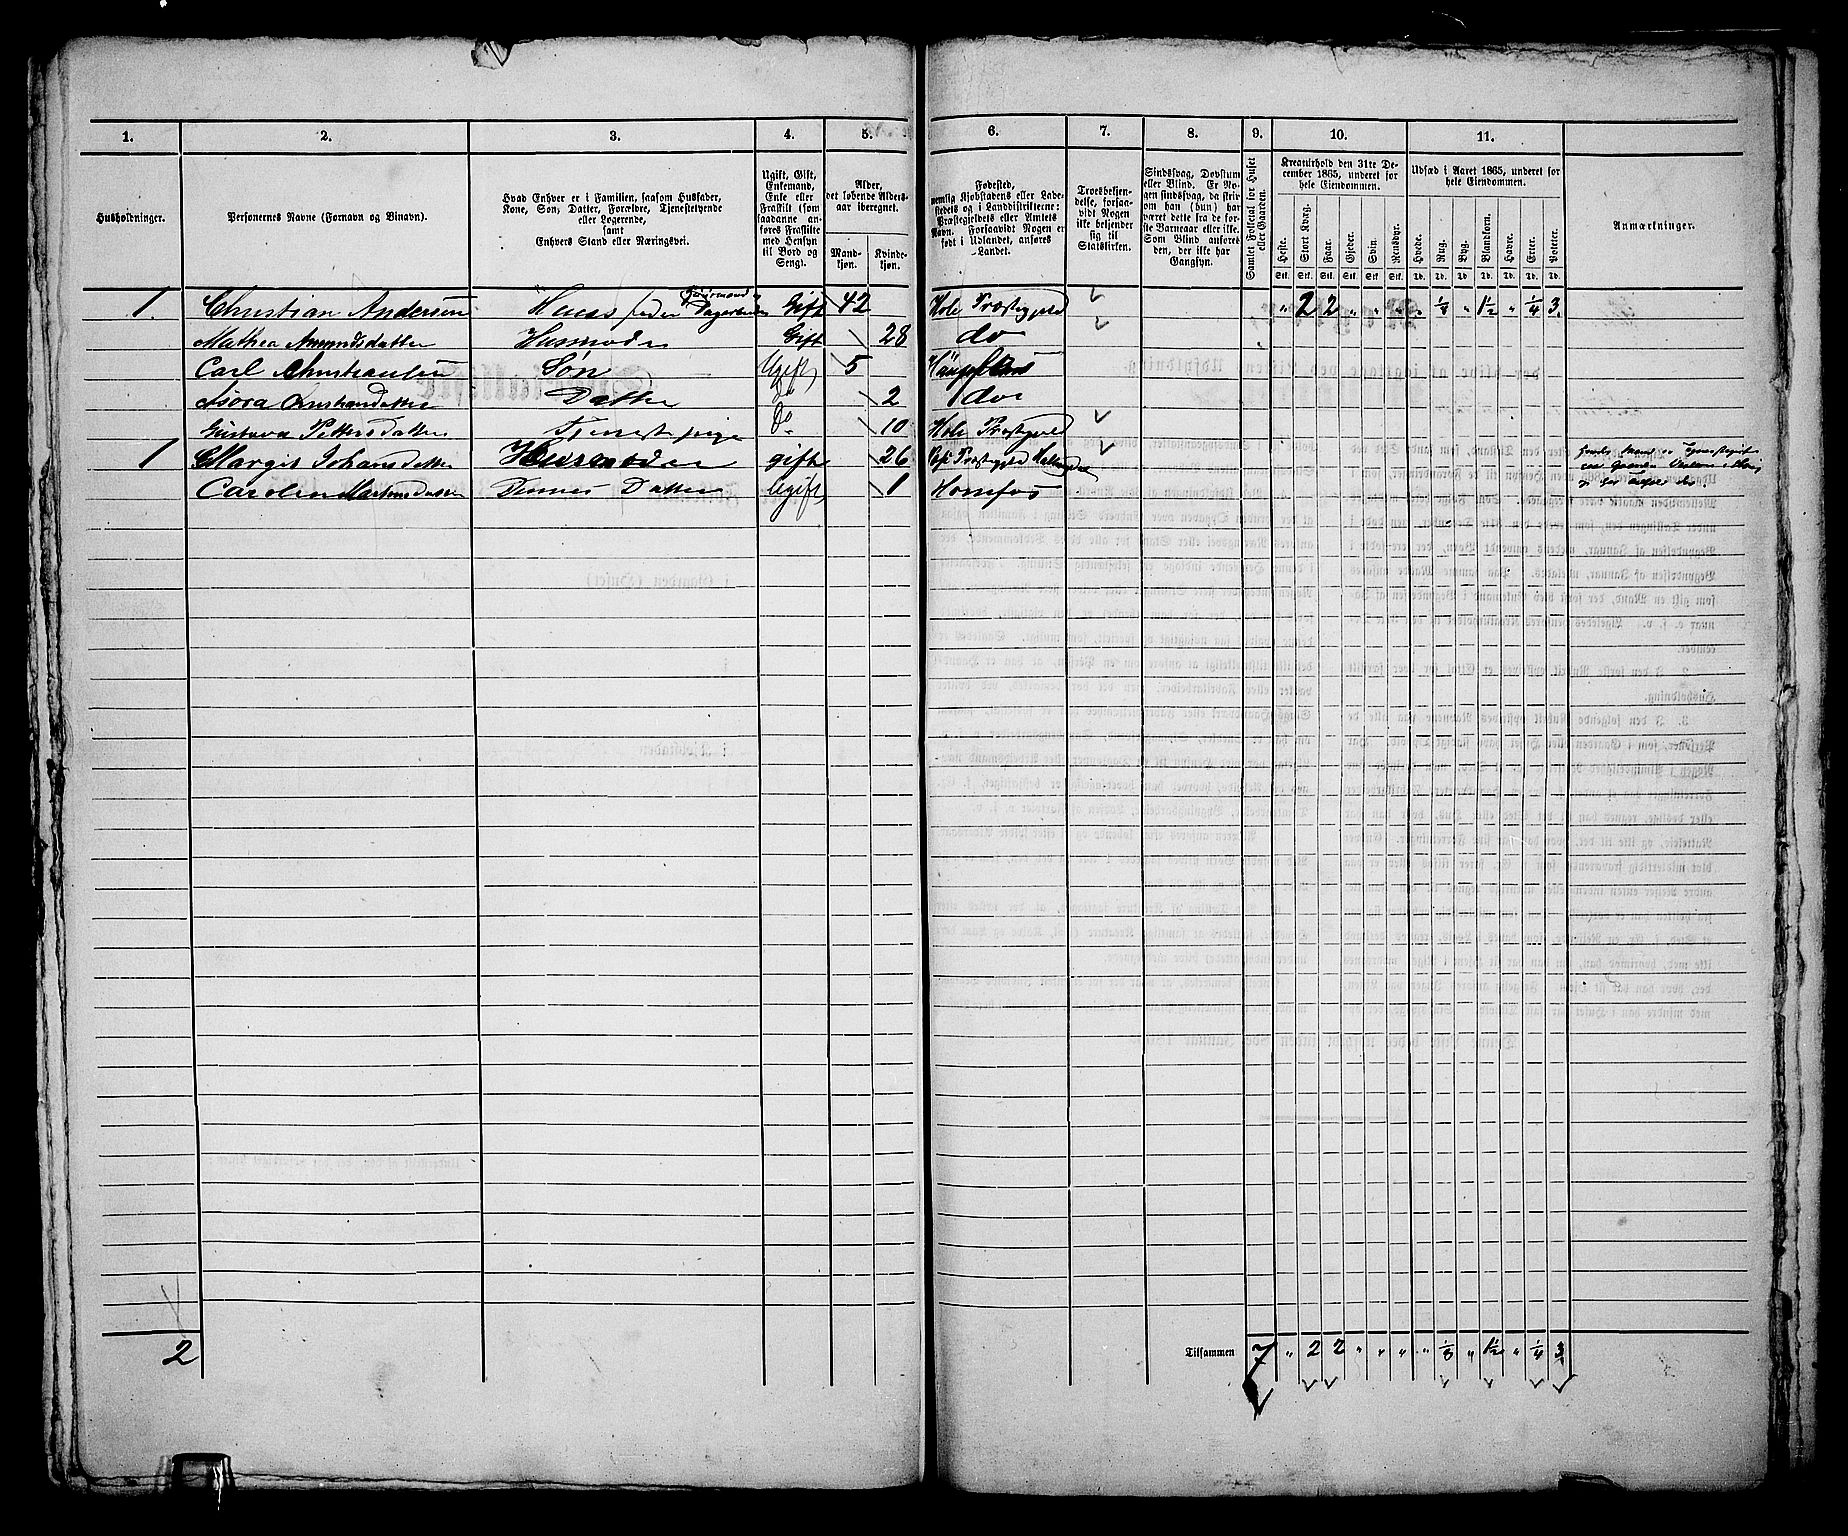 1. 2. 3. 4. 5. 6. 7. 8. 9. 10. 11.
Husholdninger.
Personernes Navne (Fornavn og Binavn).
Hvad Enhver er i Familien, saasom Husfader,
Kone, Søn, Datter, Forældre, Tjenestetyende
eller Logerende,
samt
Enhvers Stand eller Næringsvei.
Ugift, Gift,
Enkemand,
Enke eller
Fraskilt (som
saadanne an-
føres Fraskilte
med Hensyn
til Bord og
Seng).
Alder,
det løbende Alders-
aar iberegnet.
Mand-
kjøn.
Kvinde-
kjøn.
Fødested,
nemlig Kjøbstadens eller Lade-
stedets og i Landdistrikterne:
Præstegjeldets eller Amtets
Navn. Forsaavidt Nogen er
født i Udlandet, anføres
Landet.
Troesbekjen-
delse, forsaa-
vidt Nogen
ikke bekjender
sig til
Statskirken.
Sindssvag, Døvstum
eller Blind. Er No-
gen sindssvag, da strix
om han (hun) har
været dette fra de før-
ste Barneaar eller ikke.
Som Blind anføres
den, der ikke har
Gangsyn.
Samlet Folketal for Huset
eller Gaarden.
Kreaturhold den 31te De-
cember 1865, underet for
hele Eiendommen.
Heste. Stort Kvæg. Faar. Gjeder. Svin. Rensdyr.
Stk. Stk. Stk. Stk. Stk. Stk.
Udsæd i Aaret 1865, underet for
hele Eiendommen.
Hvede. Rug. Byg. Blandkorn. Havre. Erter. Poteter.
Td. Td. Td. Td. Td. Td. Td.
Anmærkninger.
1. Christian Andersen Huusfader Gift 42 Hole Præstegjeld " 2 2 " " " " 1/8 " 1 1/2 " 1/4 3
Mathea Amundsdatter Husmoder Gift 28 do
Carl Christiansen Søn Ugift 5 Hønefos
Datter do 2 do
Gustava Pettersdatter Tjenestepige Do 10 Hole Præstegjeld
1 Margit Johansdatter Husmoder gift 26 Præstegjeld
Carolin Martinsdatter Datter Ugift 1 Honefos
2 Tilsammen 7 " 2 2 " " " " 1/8 " 1 1/2 " 1/4 3